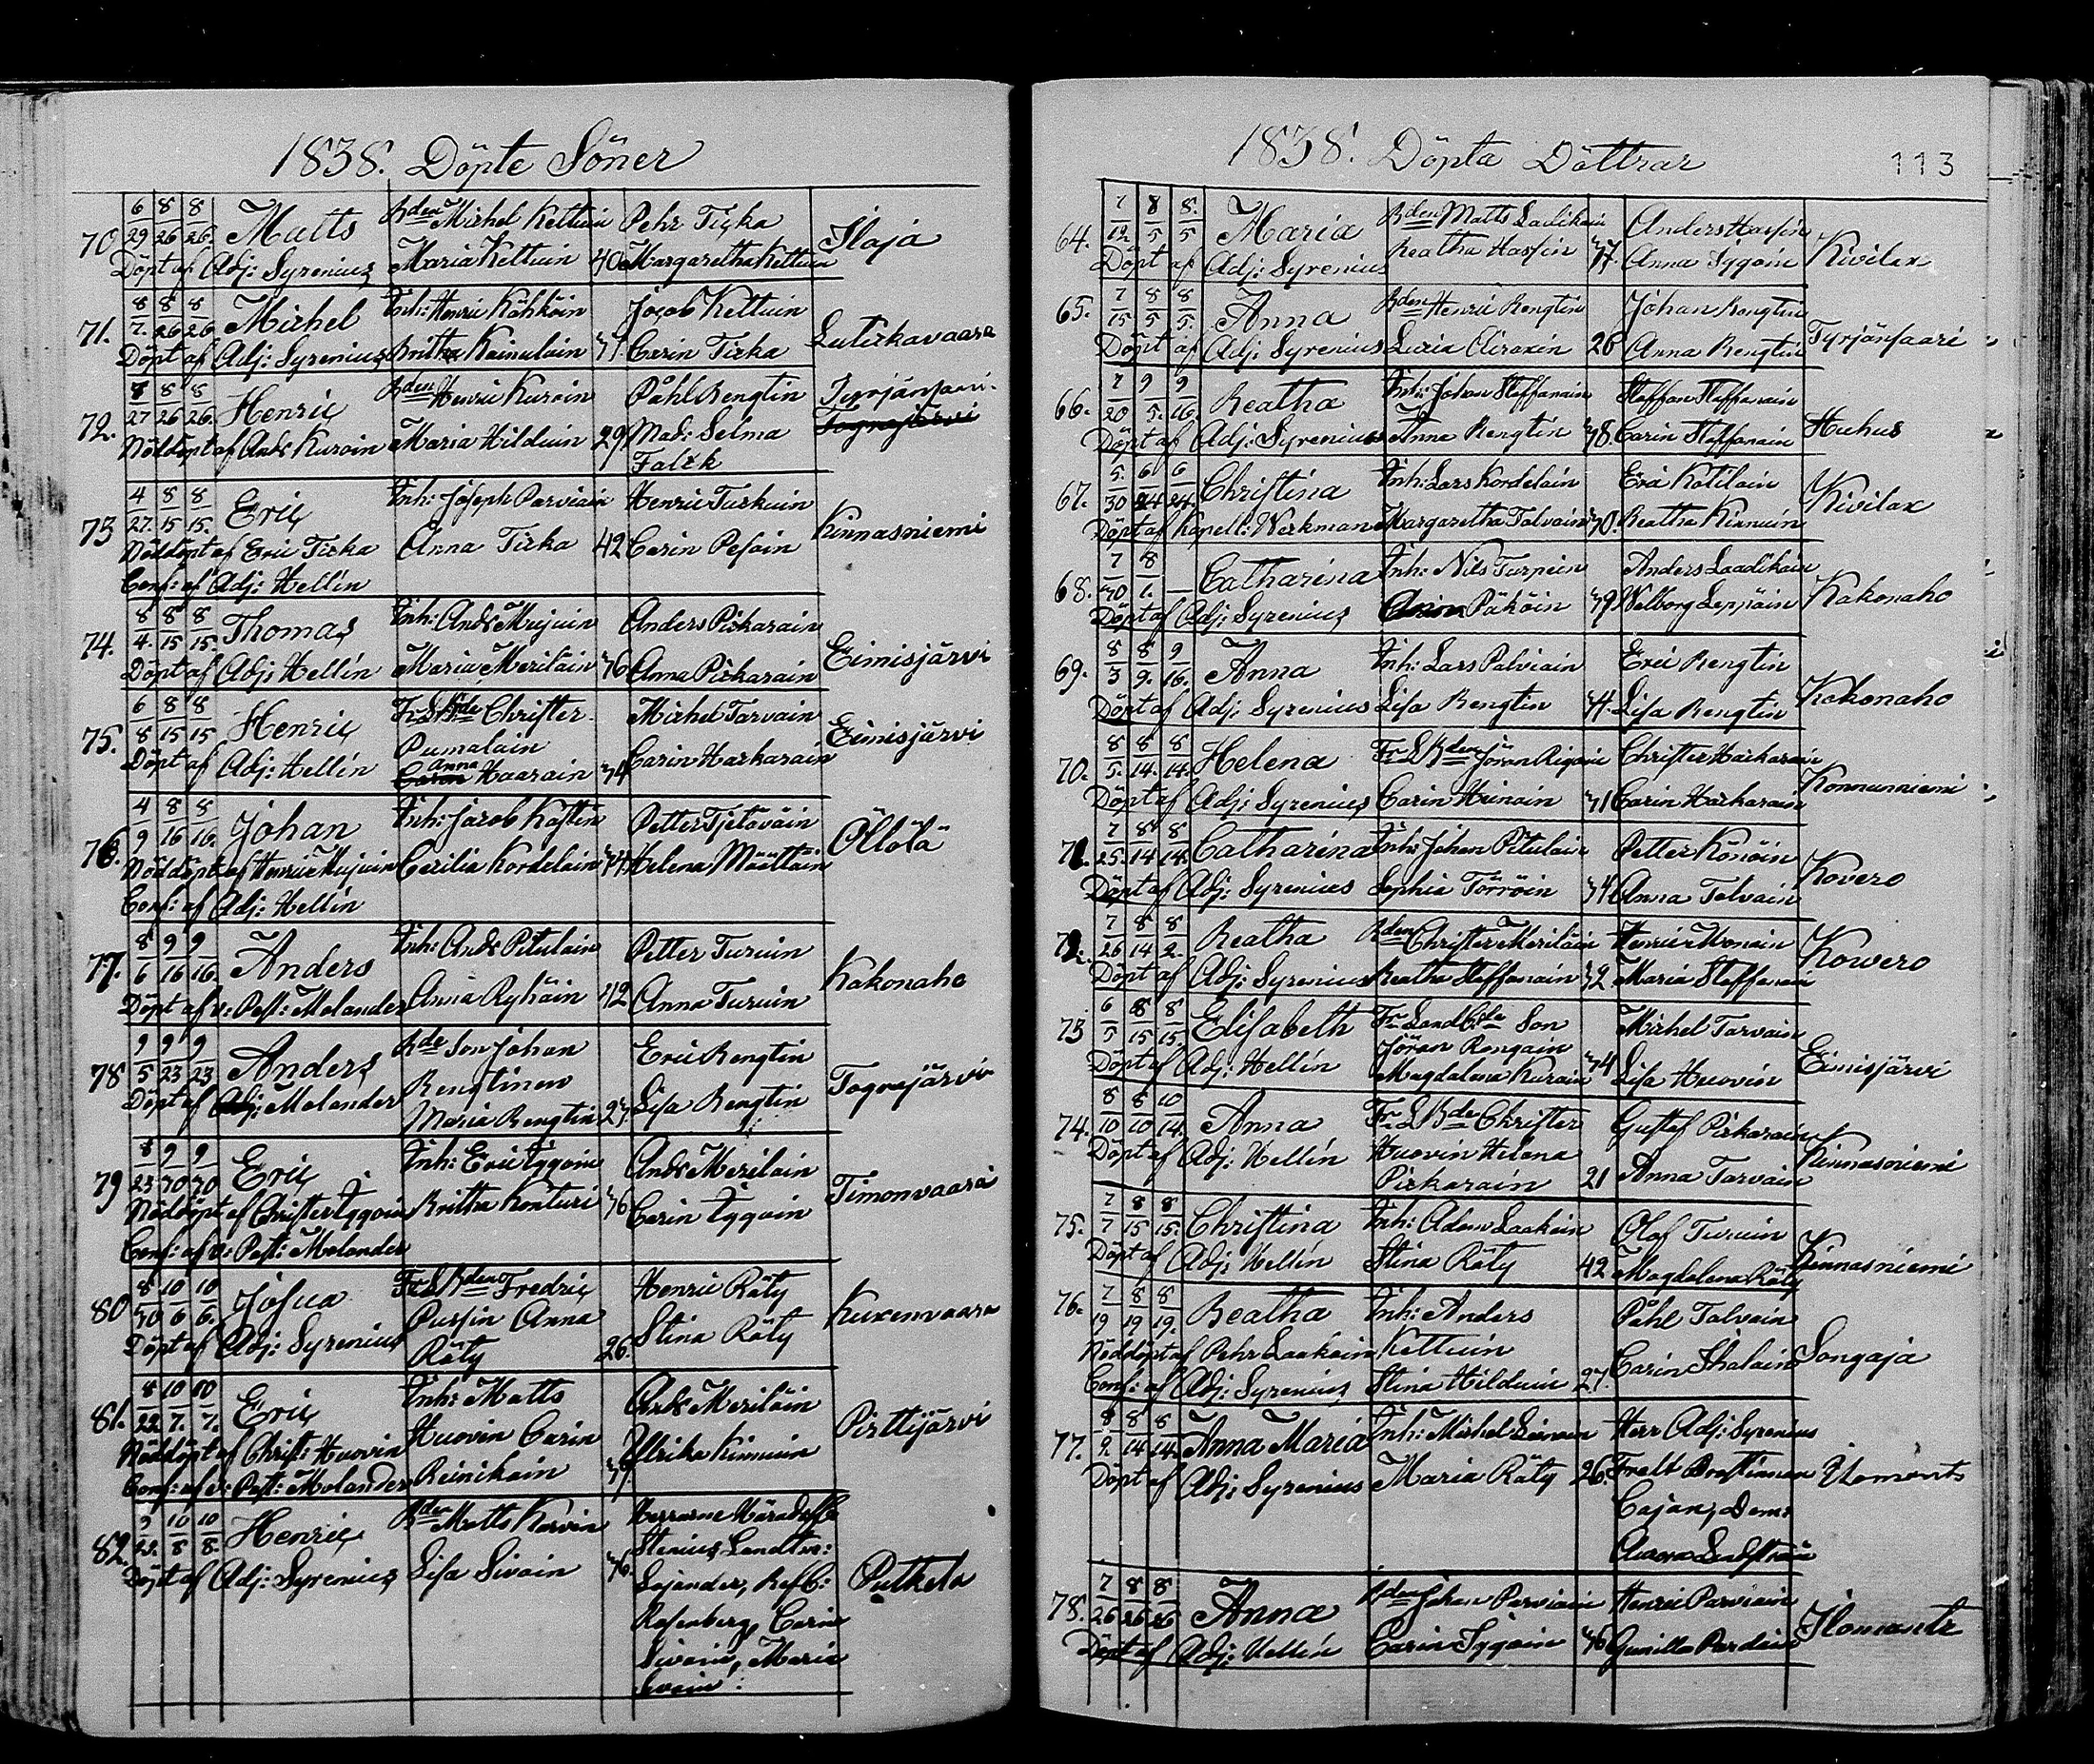 1838. Döpte Söner
70. 6/29 8/26 8/26. Matts Bden Michel Kettuin Pehr Ticka Ilaja
Döpt af Adj: Syrenius Maria Kettuin 40 Margaretha Kettuin
71. 8/7. 8/26 8/26 Michel Inh: Henric Kähköin Jacob Kettuin Lutickavaara
Döpt af Adj: Syrenius Britha Kainulain Carin Ticka
72. 8/27 8/26 8/26. Henric Bden Henric Kuroin Påhl Rengtin
Nöddöpt af Ands Kuroin Maria Hilduin 29 Mad: Selma
Falck
73 4/27. 8/15 8/15. Eric Inh: Joseph Parviain Henric Turkuin Kinnasniemi
Nöddöpt af Eric Ticka Anna Ticka 42 Carin Pesoin
Conf: af Adj: Hellin
74. 8/4. 8/15 8/15. Thomas Inh: Ands Mujuin Anders Pickarain Eimisjärvi
Döpt af Adj: Hellin Maria Meriläin 36 Anna Pickarain
75. 6/8 8/15 8/15 Henric Fr. L Bde Christer Michel Tarvain Eimisjärvi
Döpt af Adj: Hellin Pumalain Carin Harkarain
Anna Haarain 34
76. 4/9 8/16 8/16. Johan Inh: Jacob Kostin Petter Tjetäväin Öllölä
Nöddöpt af Henric Mujuin Cecilia Kordelain 44 Helena Määttäin
Conf: af Adj: Hellin
77. 8/6 9/16 9/16. Anders Inh: Ands Pitulain Petter Turuin Kakonaho
Döpt af v: Past: Molander Anna Ryhäin 42 Anna Turuin
78 9/5 9/23 9/23 Anders Bde Son Johan Eric Rengtin
Döpt af Molander Rengtinen Lisa Rengtin
Maria Rengtin 27.
79 8/23 9/30 9/30 Eric Inh: Eric Iggoin Ands Meriläin Timonvaara
Nöddöpt af Christer Iggoin Britha Konturi 36 Carin Iggoin
Conf: af v: Past: Molander
80 8/30 10/6 10/6. Josua Fr. L Bden Fredric Henric Räty Kuxenvaara
Döpt af Adj: Syrenius Pursin Anna Stina Räty
Räty 26.
81. 8/22 10/7. 10/7. Eric Inh: Matts Ands Meriläin Pirttijärvi
Nöddöpt af Christ: Huovin Huovin Carin Ulrika Kinnuin
Conf: af v: Past: Molander Reinikain
82. 9/22. 10/8 10/8. Henric Bden Matts Korvin Herrarne
Döpt af Adj: Syrenius Lisa Sivoin 36. Stenius, Landtm:
Lojander, Putkela
Rosenberg, Carin
Sivoin, Maria
Sivoin.
1838. Döpta Döttrar 113
64. 7/12 8/5 8/5 Maria Bden Matts Laitikain Anders Hassin Kivilax
Döpt af Adj: Syrenius Beatha Hassin 37. Anna Iggoin
65. 7/15 8/5 8/5. Anna Bden Henric Rengtin Johan Rengtin Tyrjänsaari
Döpt af Adj: Syrenius Lucia Airaxin 26 Anna Rengtin
66. 7/20 9/5. 9/16. Beatha Inh: Johan Staffanain Staffan Staffanain Huhus
Döpt af Adj: Syrenius Anna Rengtin 38 Carin Staffanain
67. 5/30 6/24 6/24. Christina Inh: Lars Kordelain Eric Kotilain Kivilax
Döpt af Kapell: Werkman Margaretha Talvain 30. Beatha Kinnuin
68. 7/30 8/1. — Catharina Inh: Nils Turpein Anders Laadikain Kakonaho
Döpt af Adj: Syrenius Päköin 39 Walborg Leppäin
69. 8/3 8/9. 9/16. Anna Inh: Lars Palviain Eric Rengtin Kakonaho
Döpt af Adj: Syrenius Lisa Rengtin 34. Lisa Rengtin
70. 8/5. 8/14. 8/14. Helena Fr. L Bden Jöran Rigoin Christer Harkarain Konnunniemi
Döpt af Adj: Syrenius Carin Heinoin 31 Carin Harkarain
71. 7/25. 8/14 8/14. Catharina Inh: Johan Pitulain Petter Könöin Kovero
Döpt af Adj: Syrenius Sophia Törröin 34 Anna Talvain
72. 7/26 8/14 8/2. Beatha Bden Christer Meriläin Henric Wonain Kowero
Döpt af Adj: Syrenius Beatha Staffanain 32 Maria Staffanain
73 6/5 8/15 8/15. Elisabeth Fr. Landbde Son Michel Tarvain Eimisjärvi
Döpt af Adj: Hellin Jöran Rongain Lisa Huovin
Magdalena Kurain 34
74. 8/10 8/10 10/14. Anna Fr. L Bde Christer Gustaf Pickarain Kinnasniemi
Döpt af Adj: Hellin Huovin Helena Anna Tarvain
Pickarain 21
75. 7/7 8/15 8/15. Christina Inh: Adam Laakain Olof Turuin Kinnasniemi
Döpt af Adj: Hellin Stina Räty 42 Magdalena Räty
76. 7/19 8/19 8/19. Beatha Inh: Anders Påhl Talvain Songaja
Nöddöpt af Pehr Laakain Kettuin Carin Ihalain
Conf: af Adj: Syrenius Stina Hilduin 27.
77. 8/9. 8/14 8/14. Anna Maria Inh: Michel Herr Adj: Syrenius
Döpt af Adj: Syrenius Maria Räty 26. Ilomants
Cajan, Dem:
Aurora Lindström
78. 7/26 8/26 8/26 Anna Bden Johan Parviain Henric Parviain Ilomants
Döpt af Adj: Hellin Carin Iggoin 36 Gunilla